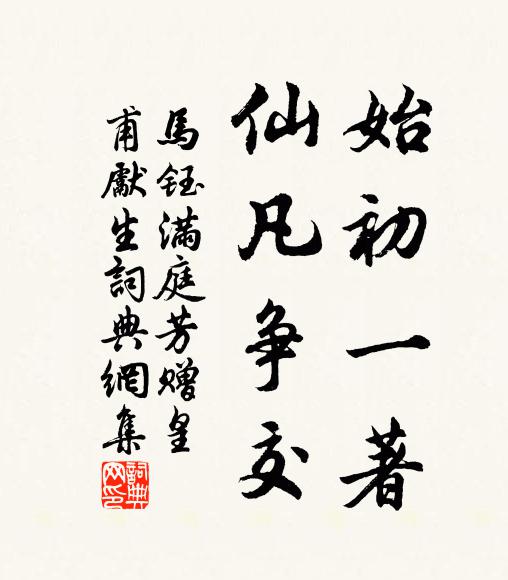 始初一著
仙凡争交
馬鈺滿庭芳贈皇
甫獻生詞典網集
詞典
网印